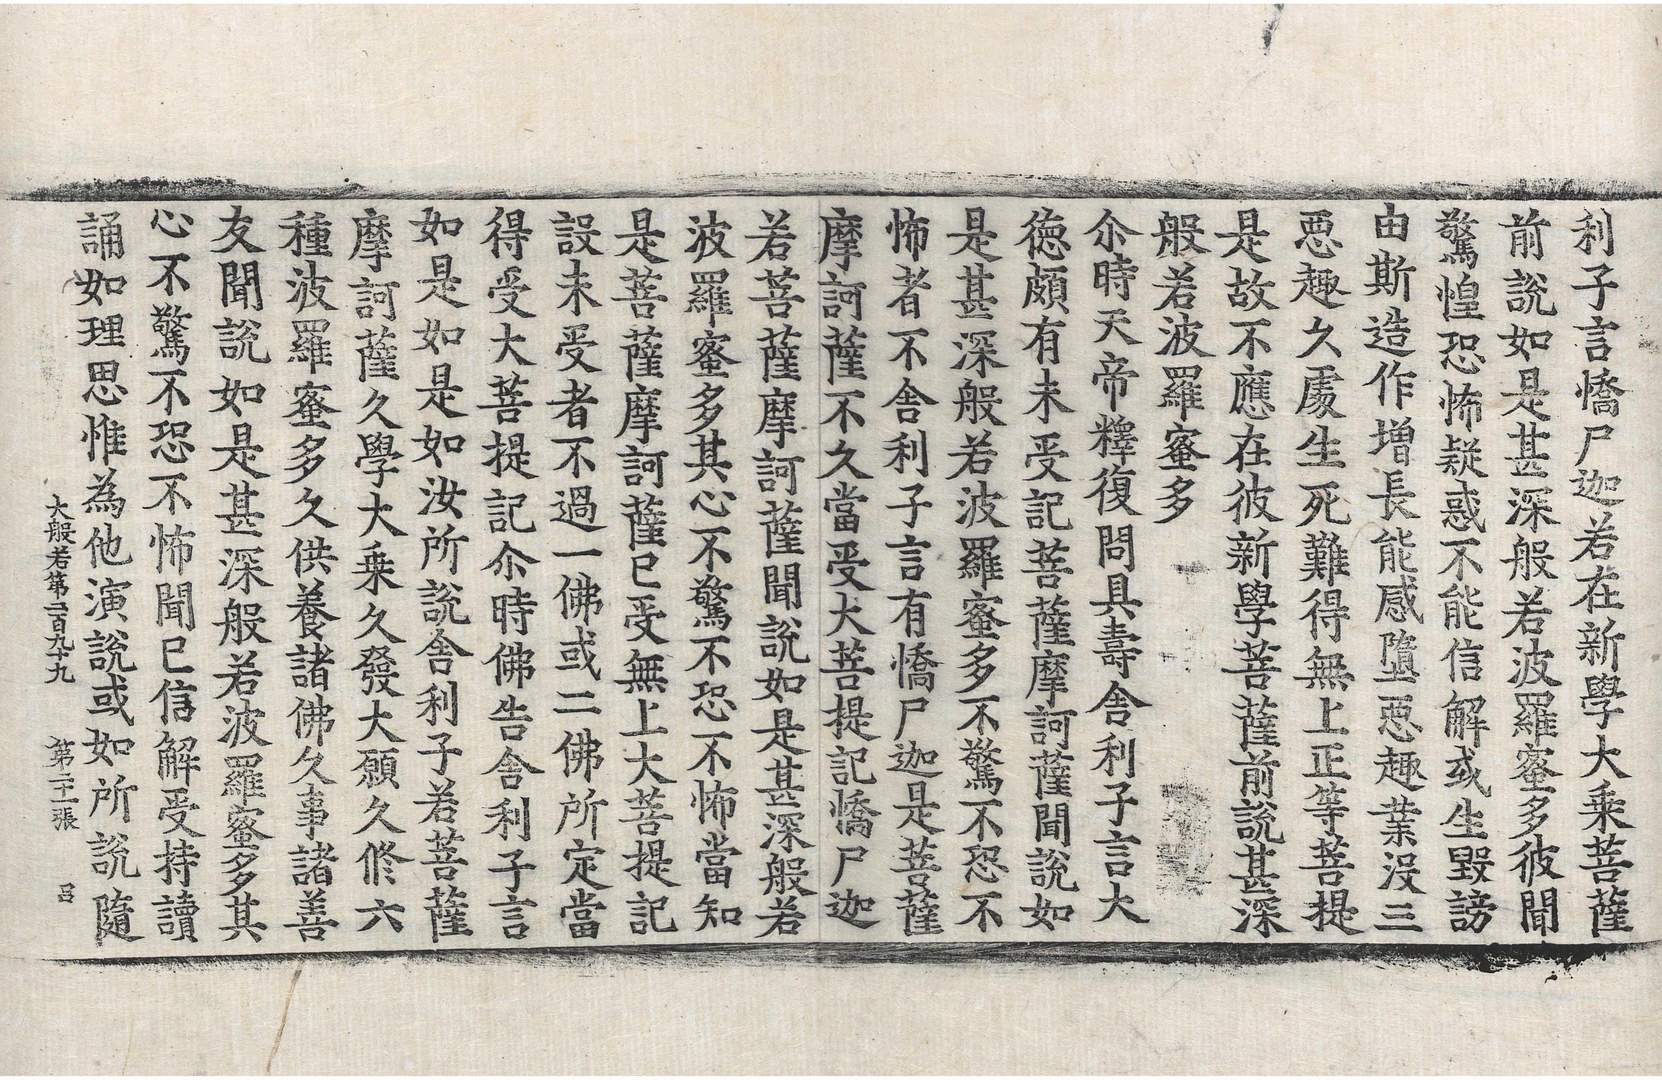 利子言憍尸迦若在新學大乗菩薩
前說如是甚深般若波羅蜜多彼聞
驚惶恐怖疑惑不能信解或生毀謗
由斯造作增長能感墮惡趣業没三
惡趣久處生死難得無上正等菩提
是故不應在彼新學菩薩前說甚深
般若波羅蜜多
尒時天帝釋復問具壽舍利子言大
德頗有未受記菩薩摩訶薩聞說如
是甚深般若波羅蜜多不驚不恐不
怖者不舍利子言有憍尸迦是菩薩
摩訶薩不久當受大菩提記憍尸迦
若菩薩摩訶薩聞說如是甚深般若
波羅蜜多其心不驚不恐不怖當知
是菩薩摩訶薩已受無上大菩提記
設未受者不過一佛或二佛所定當
得受大菩提記尒時佛告舍利子言
如是如是如汝所說舍利子若菩薩
摩訶薩久學大乗久發大願久修六
種波羅蜜多久供養諸佛久事諸善
友聞說如是甚深般若波羅蜜多其
心不驚不恐不怖聞已信解受持讀
誦如理思惟為他演說或如所說隨
大般若第二百九十九 第二十一張 呂